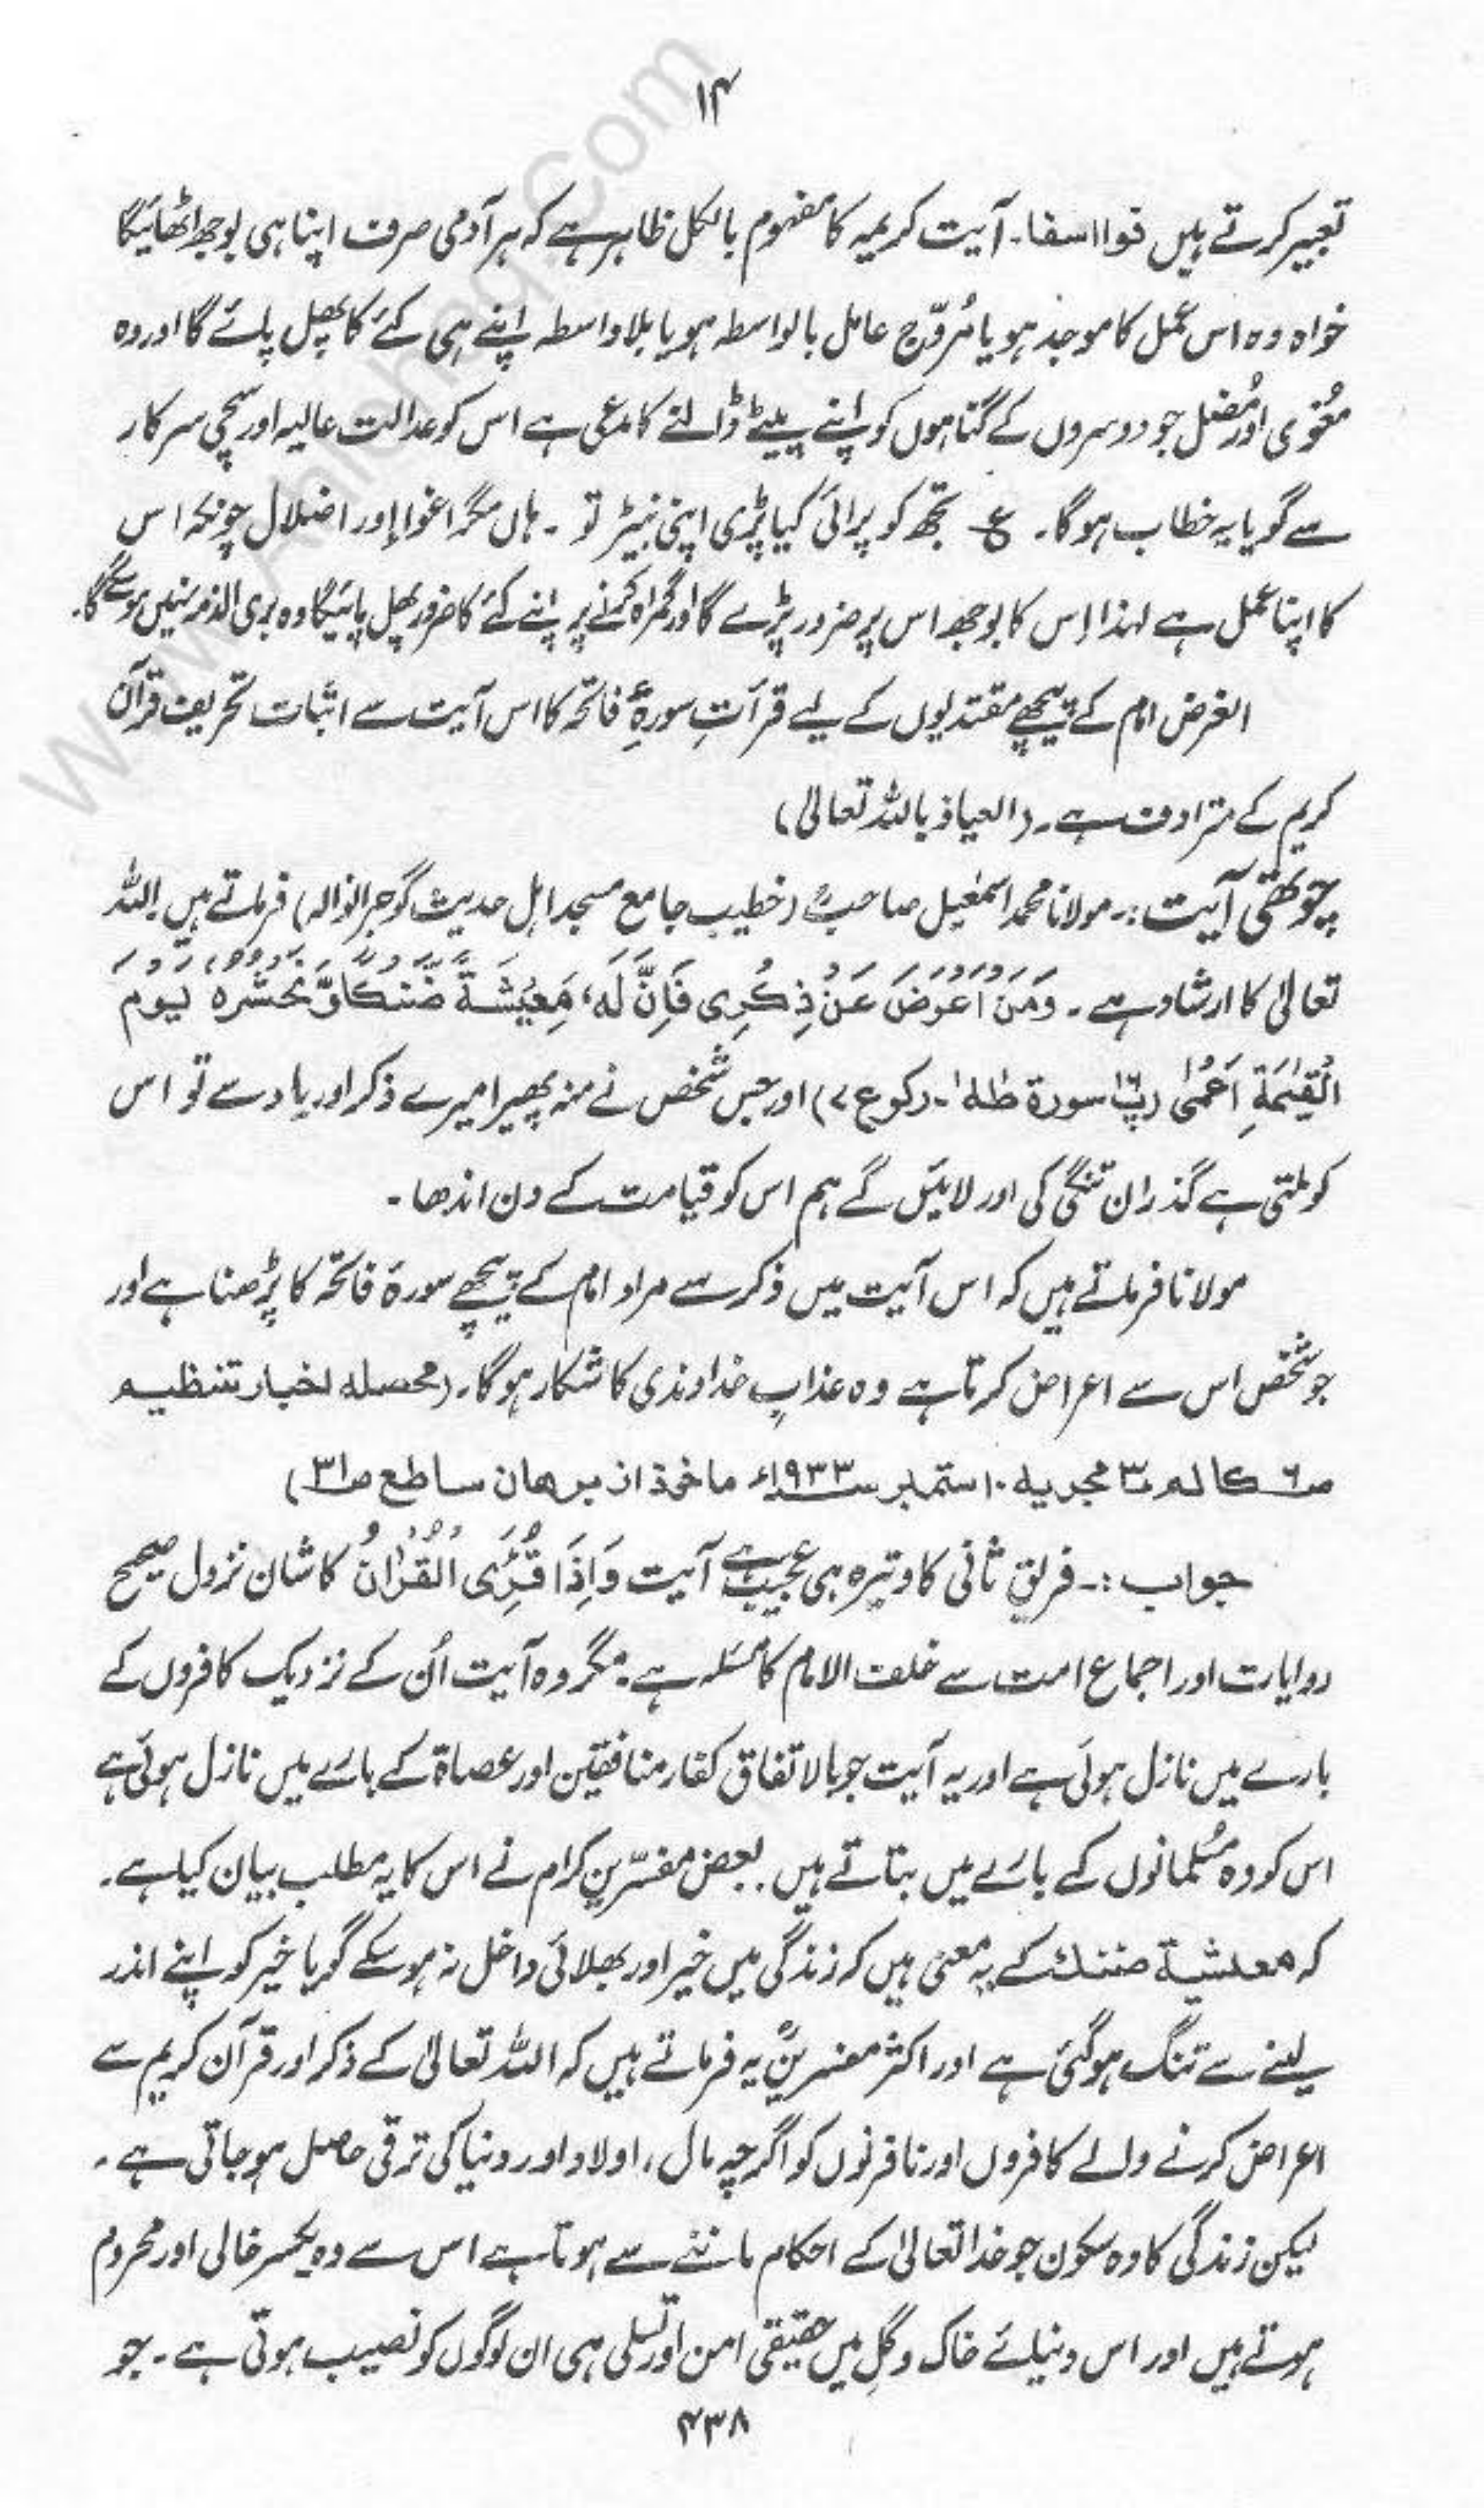 ۱۴
تعبیر کرتے ہیں فوااسفا۔ آیت کریمہ کا مفہوم بالکل ظاہر ہے کہ ہر آدمی صرف اپنا ہی بوجھ اٹھائیگا
خواہ وہ اس عمل کا موجد ہو یا مُروّج عامل بالواسطہ ہو یا بلاواسطہ اپنے ہی کئے کا پھل پائے گا اور وہ
مُغوی اور مُضل جو دوسروں کے گناہوں کو اپنے پلیٹے ڈالنے کا مدعی ہے اس کو عدالت عالیہ اور سچی سرکار
سے گویا یہ خطاب ہوگا۔ ع تجھ کو پرائی کیا پڑی اپنی نبیڑ تو ۔ ہاں مگر اغوا اور اضلال چونکہ اس
کا اپنا عمل ہے لہذا اِس کا بوجھ اس پر ضرور پڑے گا اور گمراہ کرنے پر اپنے کئے کا ضرور پھل پائیگا وہ بری الذمہ نہیں ہوسکے گا۔
الغرض امام کے پیچھے مقتدیوں کے لیے قرأتِ سورۂ فاتحہ کا اس آیت سے اثبات تحریف قرآن
کریم کے مترادف ہے۔ (العیاذ باللہ تعالیٰ)
چوتھی آیت :۔ مولانا محمد اسمٰعیل صاحبؒ (خطیب جامع مسجد اہل حدیث گوجرانوالہ) فرماتے ہیں اللہ
تعالیٰ کا ارشاد ہے ۔ وَمَنْ اَعْرَضَ عَنْ ذِكْرِى فَاِنَّ لَهٗ مَعِيْشَةً ضَنْكًا وَّنَحْشُرُهٗ يَوْمَ
الْقِيٰمَةِ اَعْمٰى (پ۱۶ سورۃ طٰہٰ۔ رکوع ۷) اور جس شخص نے منہ پھیرا میرے ذکر اور یاد سے تو اس
کو ملتی ہے گذران تنگی کی اور لائیں گے ہم اس کو قیامت کے دن اندھا ۔
مولانا فرماتے ہیں کہ اس آیت میں ذکر سے مراد امام کے پیچھے سورۃ فاتحہ کا پڑھنا ہے اور
جو شخص اس سے اعراض کرتا ہے وہ عذابِ خداوندی کا شکار ہوگا۔ (محصلہ اخبار تنظیم
ص۶ کالم ۳ مجریہ ۱۰ ستمبر ۱۹۳۳ء ماخوذ از برھان ساطع ص۳۱)
جواب :۔ فریق ثانی کا وتیرہ ہی عجیب ہے آیت وَاِذَا قُرِئَ الْقُرْاٰنُ کا شان نزول صحیح
روایات اور اجماع امت سے خلف الامام کا مسئلہ ہے۔ مگر وہ آیت اُن کے نزدیک کافروں کے
بارے میں نازل ہوئی ہے اور یہ آیت جو بالاتفاق کفار منافقین اور عصاۃ کے بارے میں نازل ہوئی ہے
اس کو وہ مُسلمانوں کے بارے میں بتاتے ہیں۔ بعض مفسّرین کرام نے اس کا یہ مطلب بیان کیا ہے۔
کہ معیشۃ ضنک کے یہ معنی ہیں کہ زندگی میں خیر اور بھلائی داخل نہ ہوسکے گویا خیر کو اپنے اندر
لینے سے تنگ ہوگئی ہے اور اکثر مفسرینؒ یہ فرماتے ہیں کہ اللہ تعالیٰ کے ذکر اور قرآن کریم سے
اعراض کرنے والے کافروں اور نافرنوں کو اگرچہ مال، اولاد اور دنیا کی ترقی حاصل ہو جاتی ہے ۔
لیکن زندگی کا وہ سکون جو خدا تعالیٰ کے احکام ماننے سے ہوتا ہے اس سے وہ یکسر خالی اور محروم
ہوتے ہیں اور اس دنیائے خاک و گِل میں حقیقی امن اور تسلی ہی ان لوگوں کو نصیب ہوتی ہے ۔ جو
۴۳۸